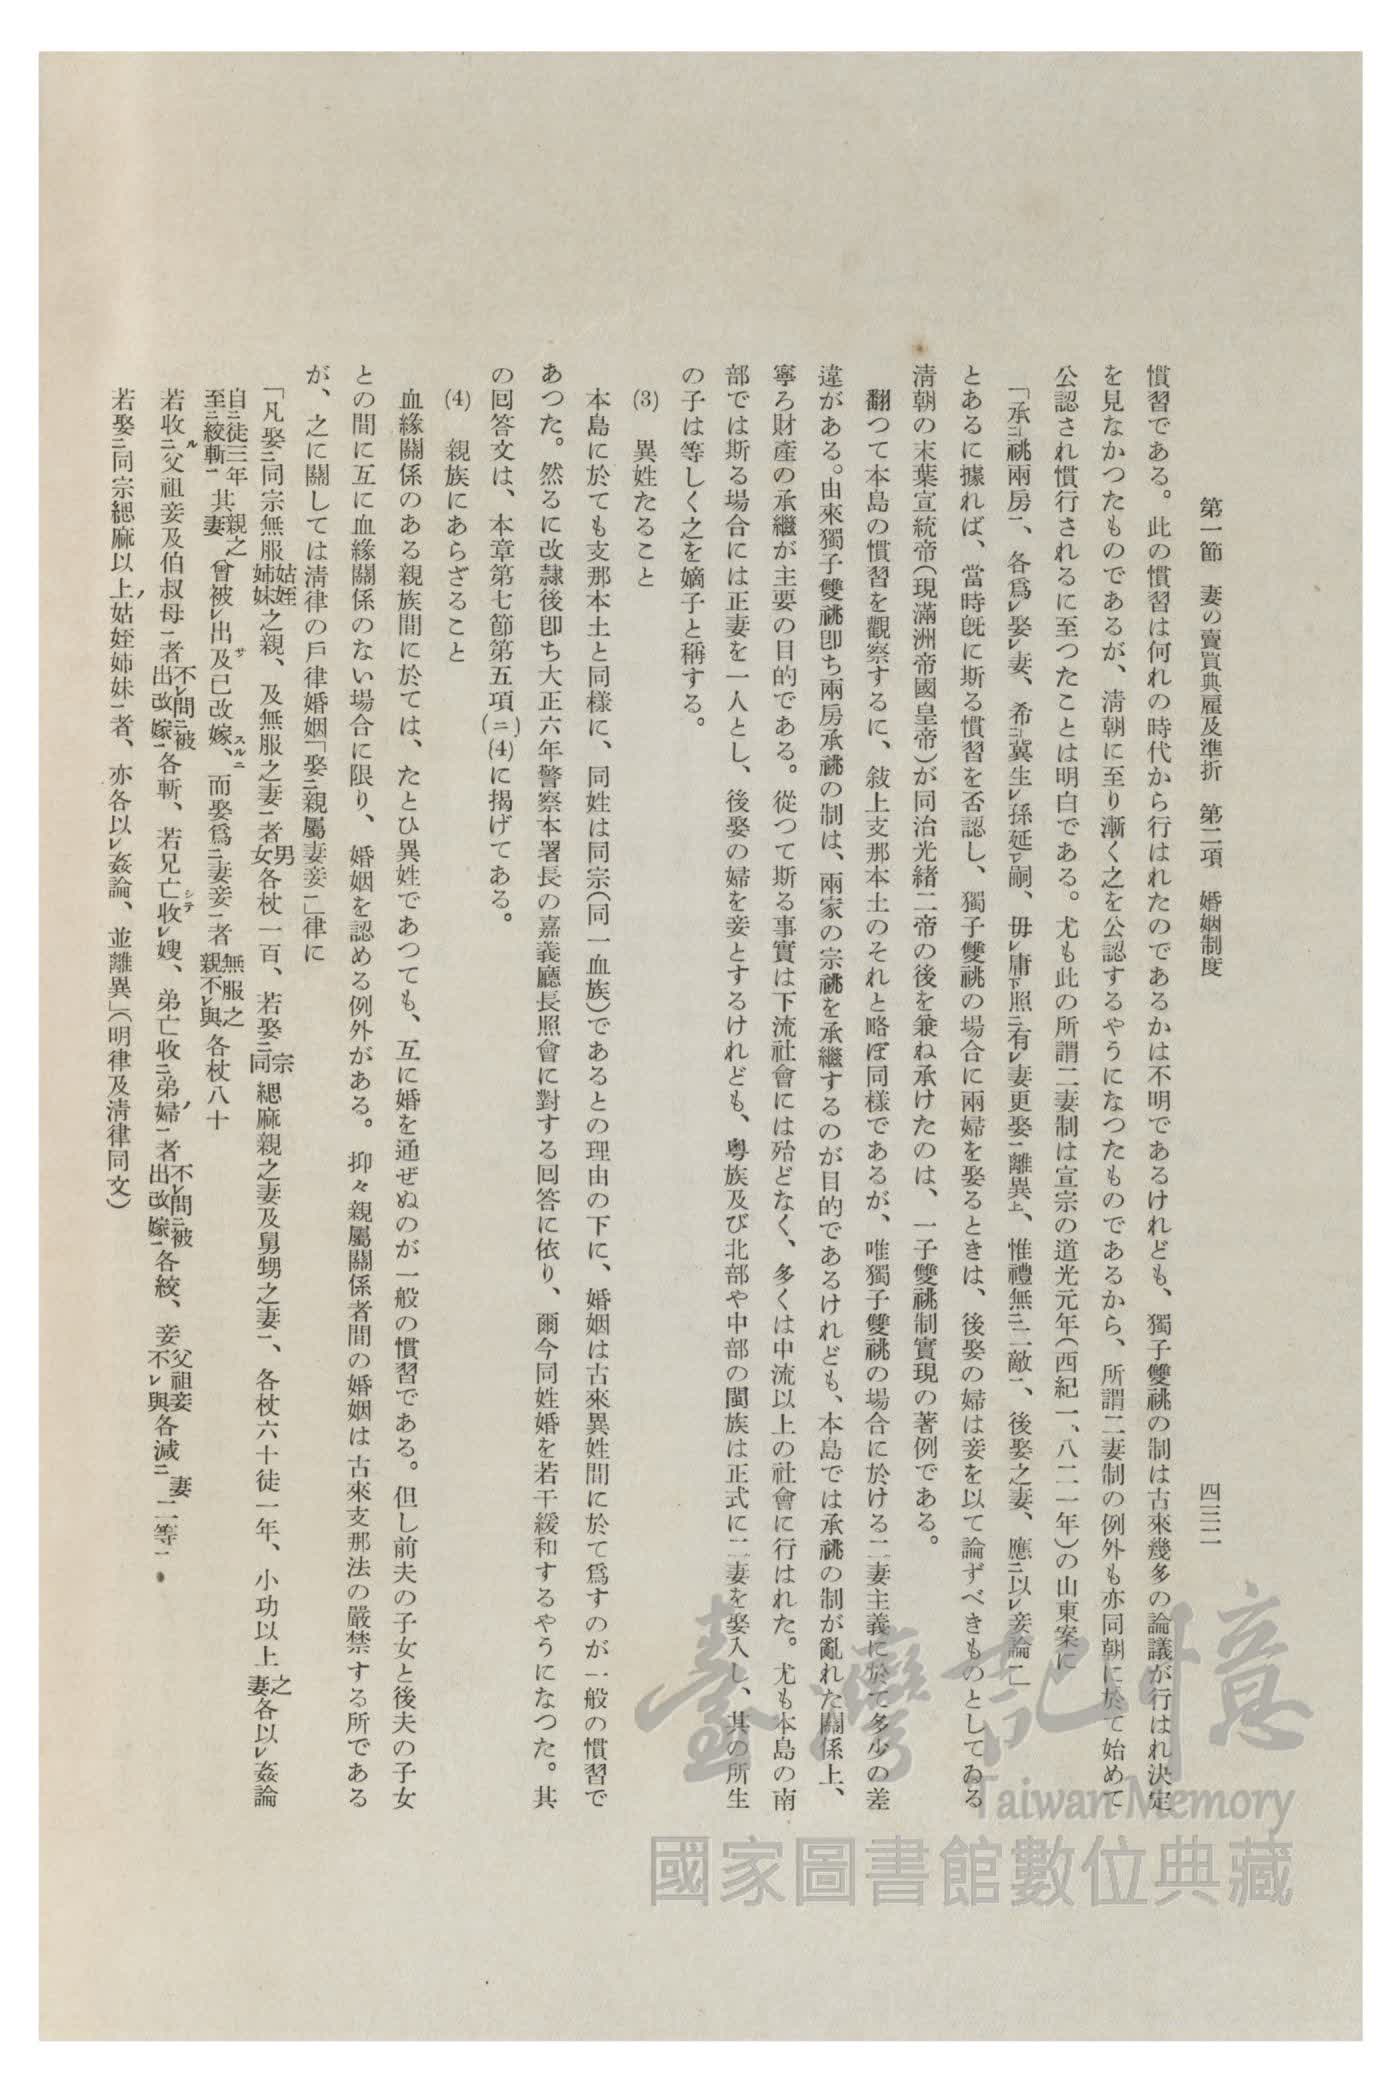 第一節　妻の賣買典雇及準折　第二項　婚姻制度　四三二
慣習である。此の慣習は何れの時代から行はれたのであるかは不明であるけれども、獨子雙祧の制は古來幾多の論議が行はれ決定
を見なかつたものであるが、淸朝に至り漸く之を公認するやうになつたものであるから、所謂二妻制の例外も亦同朝に於て始めて
公認され慣行されるに至つたことは明白である。尤も此の所謂二妻制は宣宗の道光元年(西紀一、八二一年)の山東案に
「承二祧兩房一、各爲レ娶レ妻、希二冀生レ孫延一レ嗣、毋レ庸下照二有レ妻更娶一離異上、惟禮無二二敵一、後娶之妻、應二以レ妾論一」
とあるに據れば、當時旣に斯る慣習を否認し、獨子雙祧の場合に兩婦を娶るときは、後娶の婦は妾を以て論ずべきものとしてゐる
淸朝の末葉宣統帝(現滿洲帝國皇帝)が同治光緖二帝の後を兼ね承けたのは、一子雙祧制實現の著例である。
翻つて本島の慣習を觀察するに、敍上支那本土のそれと略ぼ同樣であるが、唯獨子雙祧の場合に於ける二妻主義に於て多少の差
違がある。由來獨子雙祧卽ち兩房承祧の制は、兩家の宗祧を承繼するのが目的であるけれども、本島では承祧の制が亂れた關係上、
寧ろ財產の承繼が主要の目的である。從つて斯る事實は下流社會には殆どなく、多くは中流以上の社會に行はれた。尤も本島の南
部では斯る場合には正妻を一人とし、後娶の婦を妾とするけれども、粤族及び北部や中部の閩族は正式に二妻を娶入し、其の所生
の子は等しく之を嫡子と稱する。
(3)　異姓たること
本島に於ても支那本土と同樣に、同姓は同宗(同一血族)であるとの理由の下に、婚姻は古來異姓間に於て爲すのが一般の慣習で
あつた。然るに改隷後卽ち大正六年警察本署長の嘉義廳長照會に對する回答に依り、爾今同姓婚を若干緩和するやうになつた。其
の回答文は、本章第七節第五項(ニ)(4)に揭げてある。
(4)　親族にあらざること
血緣關係のある親族間に於ては、たとひ異姓であつても、互に婚を通ぜぬのが一般の慣習である。但し前夫の子女と後夫の子女
との間に互に血緣關係のない場合に限り、婚姻を認める例外がある。抑々親屬關係者間の婚姻は古來支那法の嚴禁する所である
が、之に關しては淸律の戶律婚姻「娶二親屬妻妾一」律に
「凡娶二同宗無服姑姪姉妹之親、及無服之妻一者男女各杖一百、若娶二同宗緦麻親之妻及舅甥之妻一、各杖六十徒一年、小功以上之妻各以レ姦論
自二徒三年至二絞斬一其親之妻曾被レ出及已改嫁、而娶爲二妻妾一者無服之親不レ與各杖八十
若收二父祖妾及伯叔母一者不レ問二被出改嫁一各斬、若兄亡收レ嫂、弟亡收二弟婦一者不レ問二被出改嫁一各絞、妾父祖妾不レ與各減二妻二等一
若娶二同宗緦麻以上姑姪姉妹一者、亦各以レ姦論、並離異」(明律及淸律同文)
臺灣記憶
Taiwan Memory
國家圖書館數位典藏